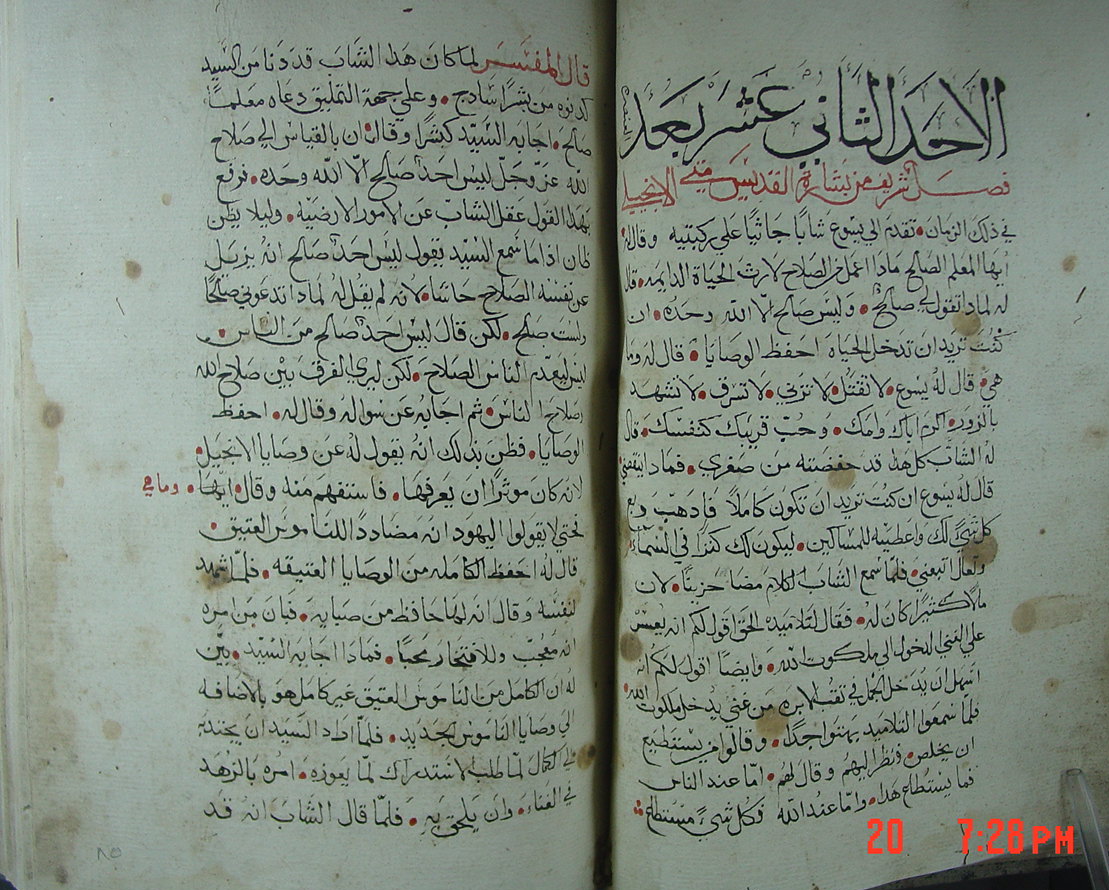 الاحد الثاني عشر بعد
العنصره
فصل شريف من بشارة القديس متى الانجيلي
في ذلك الزمان • تقدم الي يسوع شابا جاثيا علي ركبتيه وقال له
ايها المعلم الصالح ماذا اعمل من الصلاح لارث الحياة الدايمه • قال
له لماذا تقول لي صالح • وليس صالح الا الله وحده • ان
كنت تريد ان تدخل الحياه احفظ الوصايا • قال له وما
هي • قال له يسوع • لا تقتل • لا تزني • لا تسرق • لا تشهد
بالزور • اكرم اباك وامك • وحب قريبك كنفسك • قال
له الشاب كل هذا قد حفضته من صغري • فماذا ينقصني
قال له يسوع ان كنت تريد ان تكون كاملا فاذهب وبع
كل شي لك واعطيه للمساكين • ليكون لك كنزا في السماء
وتعال اتبعني • فلما سمع الشاب الكلام مضا حزينا • لان
مالا كثيرا كان له • فقال لتلاميذه الحق اقول لكم انه يعسر
علي الغني الدخول الي ملكوت الله • وايضا اقول لكم انه
اسهل ان يدخل الجمل في ثقب الابره من غني يدخل ملكوت الله •
فلما سمعوا التلاميذ بهتوا جدا • وقالوا من يستطيع
ان يخلص • فنظر اليهم وقال لهم • اما عند الناس
فما يستطاع هذا • واما عند الله فكل شي مستطاع
قال المفسر لما كان هذا الشاب قد دنا من السيد
كدنوه من بشرا ساذج • وعلي جهة التمليق دعاه معلما
صالح • اجابه السيد كبشرا وقال • ان بالقياس الي صلاح
الله عز وجل ليس احد صالح الا الله وحده • فرفع
بهذا القول عقل الشاب عن الامور الارضيه • وليلا يظن
ظان اذا ما سمع السيد يقول ليس احد صالح انه يزيل
عن نفسه الصلاح حاشا • لانه لم يقل له لماذا تدعوني صالحا
ولست صالح • لكن قال ليس احد صالح من الناس •
ليس ليعدم الناس الصلاح • لكن ليري الفرق بين صلاح الله
وصلاح الناس • ثم اجابه عن سواله وقال له • احفظ
الوصايا • فظن بذلك انه يقول له عن وصايا الانجيل •
لانه كان موثرا ان يعرفها • فاستفهم منه وقال • ايها • وما هي
لحتي لا يقولوا اليهود انه مضاددا للناموس العتيق •
قال له احفظ الكامله من الوصايا العتيقه • فلما شهد
لنفسه وقال انه لها حافظ من صبايه • فبان من امره
انه معجب وللافتخار محبا • فماذا اجابه السيد • بين
له ان الكامل من الناموس العتيق غير كامل هو بالاضافه
الي وصايا الناموس الجديد • فلما اراد السيد ان يجذبه
الي الكمال لما طلب الاستدراك لما يعوزه • امره بالزهد
في الغناء • وان يلحق به • فلما قال الشاب انه قد
٨٥
20 7:28 PM